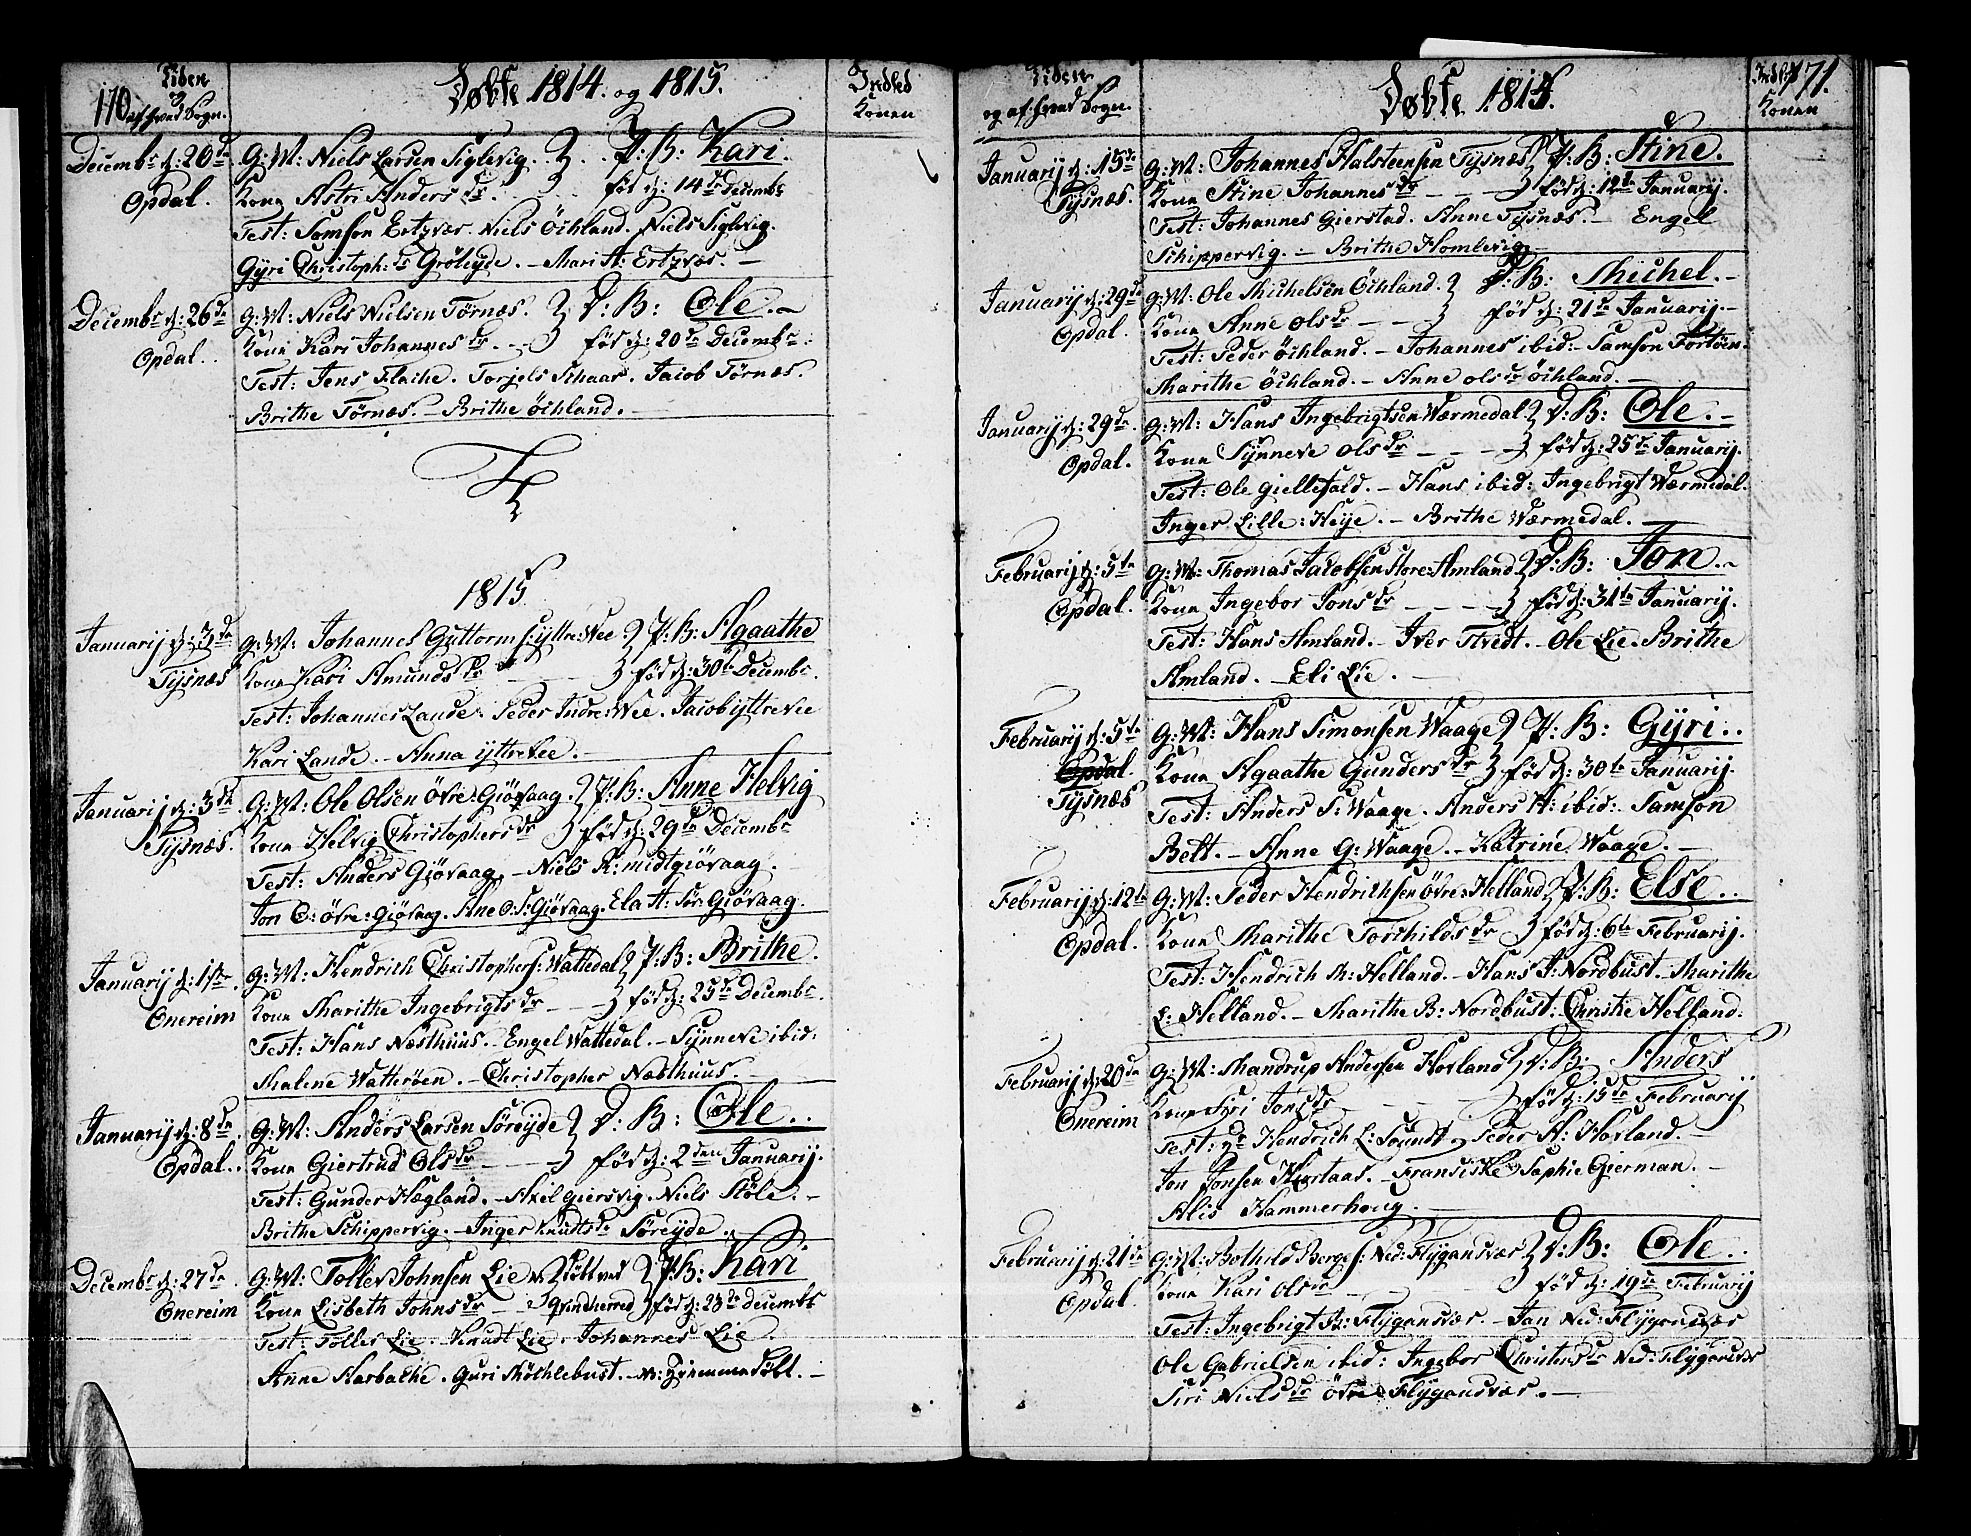 110
Tiden
og af hvad Sogn.
Døbte 1814. og 1815.
Indled
Konen
Decembr d: 26de
Opdal.
G: M: Niels Larsen Siglevig. P: B: Kari.
Kone Astri Andersdr. fød d: 14de Decembr
Test: Samson Ertzvær. Niels Öchland. Niels Siglevig.
Gÿri Christoph:dr Gröleyde. - Mari A: Ertzvæs. -
Decembr d: 26de
Opdal.
G: M: Niels Nielsen Törnæs. D: B: Ole. -
Kone Kari Johannesdr fød d: 20de Decembr
Test: Jens Flache. Torjels Schaar. Jacob Törnæs.
Brithe Törnæs. - Brithe Öchland. -
1815
Januarij d: 3de
Tÿsnæs
G: M: Johannes Guttorms: ÿttre:Vee P: B: Agaathe
Kone Kari Amundsdr fød d: 30te Decembr.
Test: Johannes Lande. Peder Indre:Vee. Jacob ÿttreVee
Kari Lande. - Anna ÿttreVee. -
Januarij d: 3de
Tÿsnæs.
G: M: Ole Olsen Övre:Giövaag. P: B: Anne Helvig
Kone Helvig Christophersdr fød d: 29de Decembr
Test: Anders Giövaag. - Niels K: midtgiövaag.
Jon O: övre:Giövaag. Ane O: S: Giövaag. Ela A: Sör Giövaag.
Januarij d: 1ste.
Onereim
G: M: Hendrich Christophers: Wattedal P: B: Brithe.
Kone Marithe Ingebrigtsdr fød d: 25de Decembr.
Test: Hans Næsthuus. - Engel Wattedal. - Sÿnneve ibid:
Malene Watteröen. - Christopher Næsthuus. -
Januarij d: 8de.
Opdal.
G: M: Anders Larsen Söreÿde D: B: Ole.
Kone Giertrud Olsdr fød d: 2den Januarij.
Test: Gunder Hægland. - Axel Giersvig. Niels Stöle. -
Brithe Schippervig. - Inger Knudtsdr Söreÿde.
Decembr d: 27de.
Onereim
G: M: Tollev Johnsen Lie P: B: Kari
Kone Lisbeth Johnsdr Qvindherred fød d: 23de Decembr
Test: Tolles Lie. Knudt Lie. Johannes Lie.
Anne Harbakke. Guri Möchlebust. -
Tiden
og af hvad Sogn.
Døbte 1815.
Indled
Konen
171.
Januarij d: 15de
Tÿsnæs.
G: M: Johannes Halsteensen Tÿsnæs P: B: Stine.
Kone Stine Johannesdr fød d: 12te Januarij.
Test: Johannes Gierstad. Anne Tÿsnæs - Engel
Schippervig. - Brithe Homlevig
Januarij d: 29de
Opdal.
G: M: Ole Michelsen Öchland. D: B: Michel. -
Kone Anne Olsdr fød d: 21de Januarij. -
Test: Peder Öchland. - Johannes ibid: - Samson Fortöen.
Marithe Öchland. - Anne Olsdr Öchland. -
Januarij d: 29de.
Opdal.
G: M: Hans Ingebrigtsen Wærmedal. D: B: Ole. -
Kone Sÿnneve Olsdr fød d: 25de Januarij.
Test: Ole Giellefald. - Hans ibid: Ingebrigt Wærmedal.
Inger Lille:Heÿe. - Brithe Wærmedal. -
Februarij d: 5te
Opdal.
G: M: Thomas Jacobsen Store:Amland D: B: Jon. -
Kone Ingebor Jonsdr fød d: 31te Januarij.
Test: Hans Amland. - Iver Tvedt. - Ole Lie. Brithe
Amland. - Eli Lie. -
Februarij d: 5te
Opdal.
Tÿsnæs
G: M: Hans Simonsen Waage P: B: Gÿri.
Kone Agaathe Gundersdr fød d: 30te Januarij.
Test: Anders S: Waage. Anders A: ibid: Samson
Belt. - Anne G: Waage. - Katrine Waage. -
Februarij d: 12te
Opdal.
G: M: Peder Hendrichsen Övre:Helland P: B: Else.
Kone Marithe Torchildsdr fød d: 6te Februarij.
Test: Hendrich M: Helland. - Hans P: Nordbust. - Marithe
L: Helland. - Marithe B: Nordbust. Christie Helland.
Februarij d: 20de
Onereim
G: M: Mandrup Andersen Hovland D: B: Anders
Kone Siri Jonsdr fød d: 15de Februarij
Test: Hr Hendrich L: Soundt og Peder A: Hovland. -
Jon Jonsen Hortaas. - Fransiske Sophie Gierman. -
Alis Hammerhoug. -
Februarij d: 21de
Opdal
G: M: Bothold Berges: Ned:Flÿgansvær D: B: Ole.
Kone Kari Olsdr fød d: 19de Februarij
Test: Ingebrigt A: Flÿgansvær. - Jan Ned:Flÿgansvær
Ole Gabrielsen ibid: Ingebor Christensdr Ned:Flÿgansvær
Siri Nielsdr Övre Flÿgansvær. -